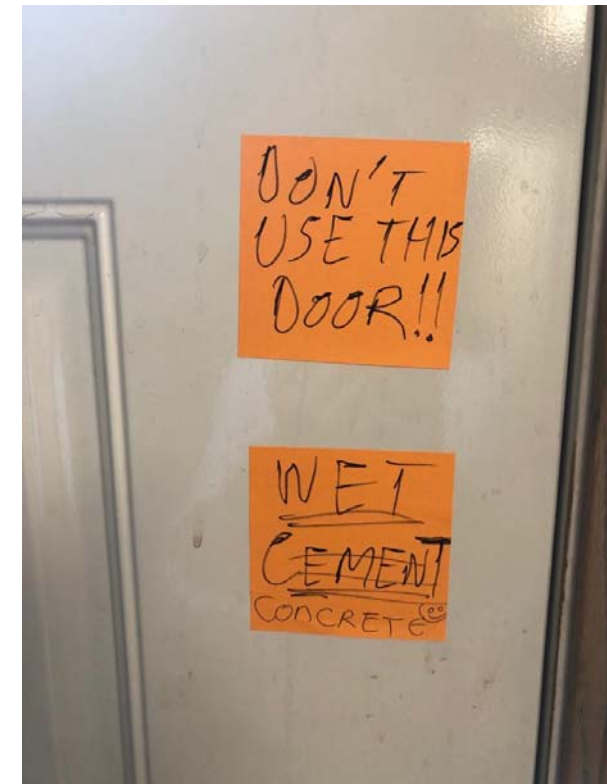 DON'T
USE THIS
DOOR!!
WET
CEMENT
CONCRETE